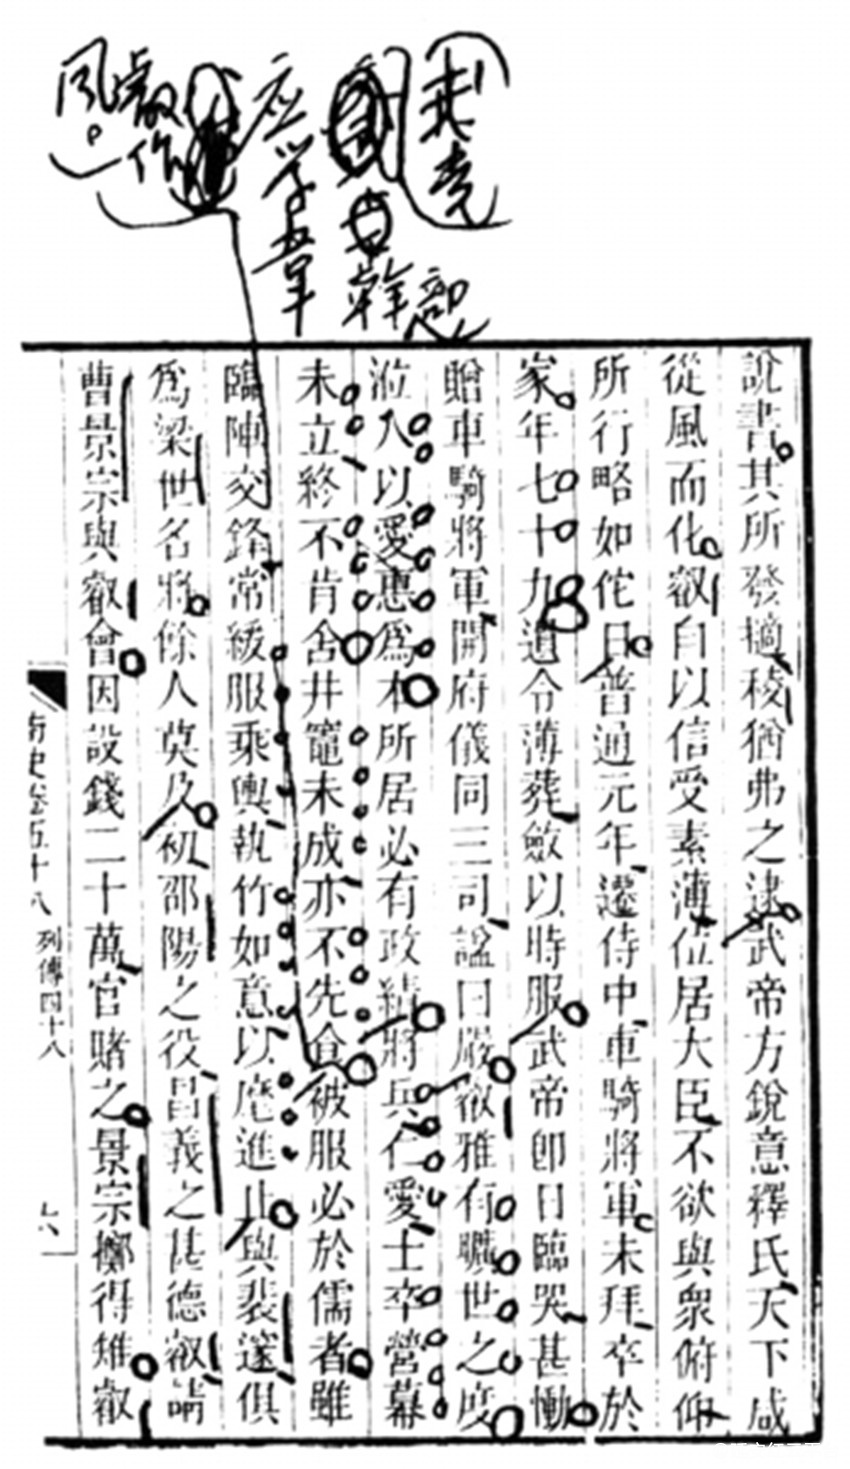 說書其所發擿稜猶弗之逮武帝方銳意釋氏天下咸
從風而化叡自以信受素薄位居大臣不欲與衆俯仰
所行略如佗日普通元年遷侍中車騎將軍未拜卒於
家年七十九遺令薄葬斂以時服武帝即日臨哭甚慟
贈車騎將軍開府儀同三司諡曰嚴叡雅有曠世之度
涖人以愛惠爲本所居必有政績將兵仁愛士卒營幕
未立終不肯舍井竈未成亦不先食被服必於儒者雖
臨陣交鋒常緩服乘輿執竹如意以麾進止與裴邃俱
爲梁世名將餘人莫及初邵陽之役昌義之甚德叡請
曹景宗與叡會因設錢二十萬官賭之景宗擲得雉叡
南史卷五十八
列傳四十八
六
應学韋
叡作
風。